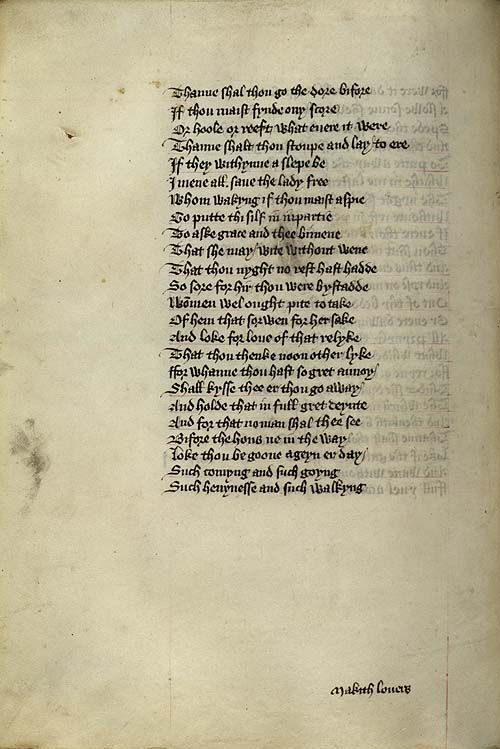 Thanne shal thou go the dore bifore
If thou maist fynde ony score
Or hoole or reeft what euere it were
Thanne shalt thou stoupe and lay to ere
If they withynne a slepe be
I mene all saue the lady free
Whom wakyng if thou maist aspie
Go putte thi silf in iupartie
To aske grace and thee bimene
That she may wite without wene
That thou nyght no rest hast hadde
So sore for hir thou were bystadde
Women wel ought pite to take
Of hem that sorwen for her sake
And loke for loue of that relyke
That thou thenke noon other lyke
ffor whanne thou hast so gret annoy
Shall kysse thee er thou go away
And holde that in full gret deynte
And for that no man shal thee see
Bifore the hous ne in the way
Loke thou be goone ageyn er day
Such comyng and such goyng
Such heuynesse and such walkyng
Makith louers